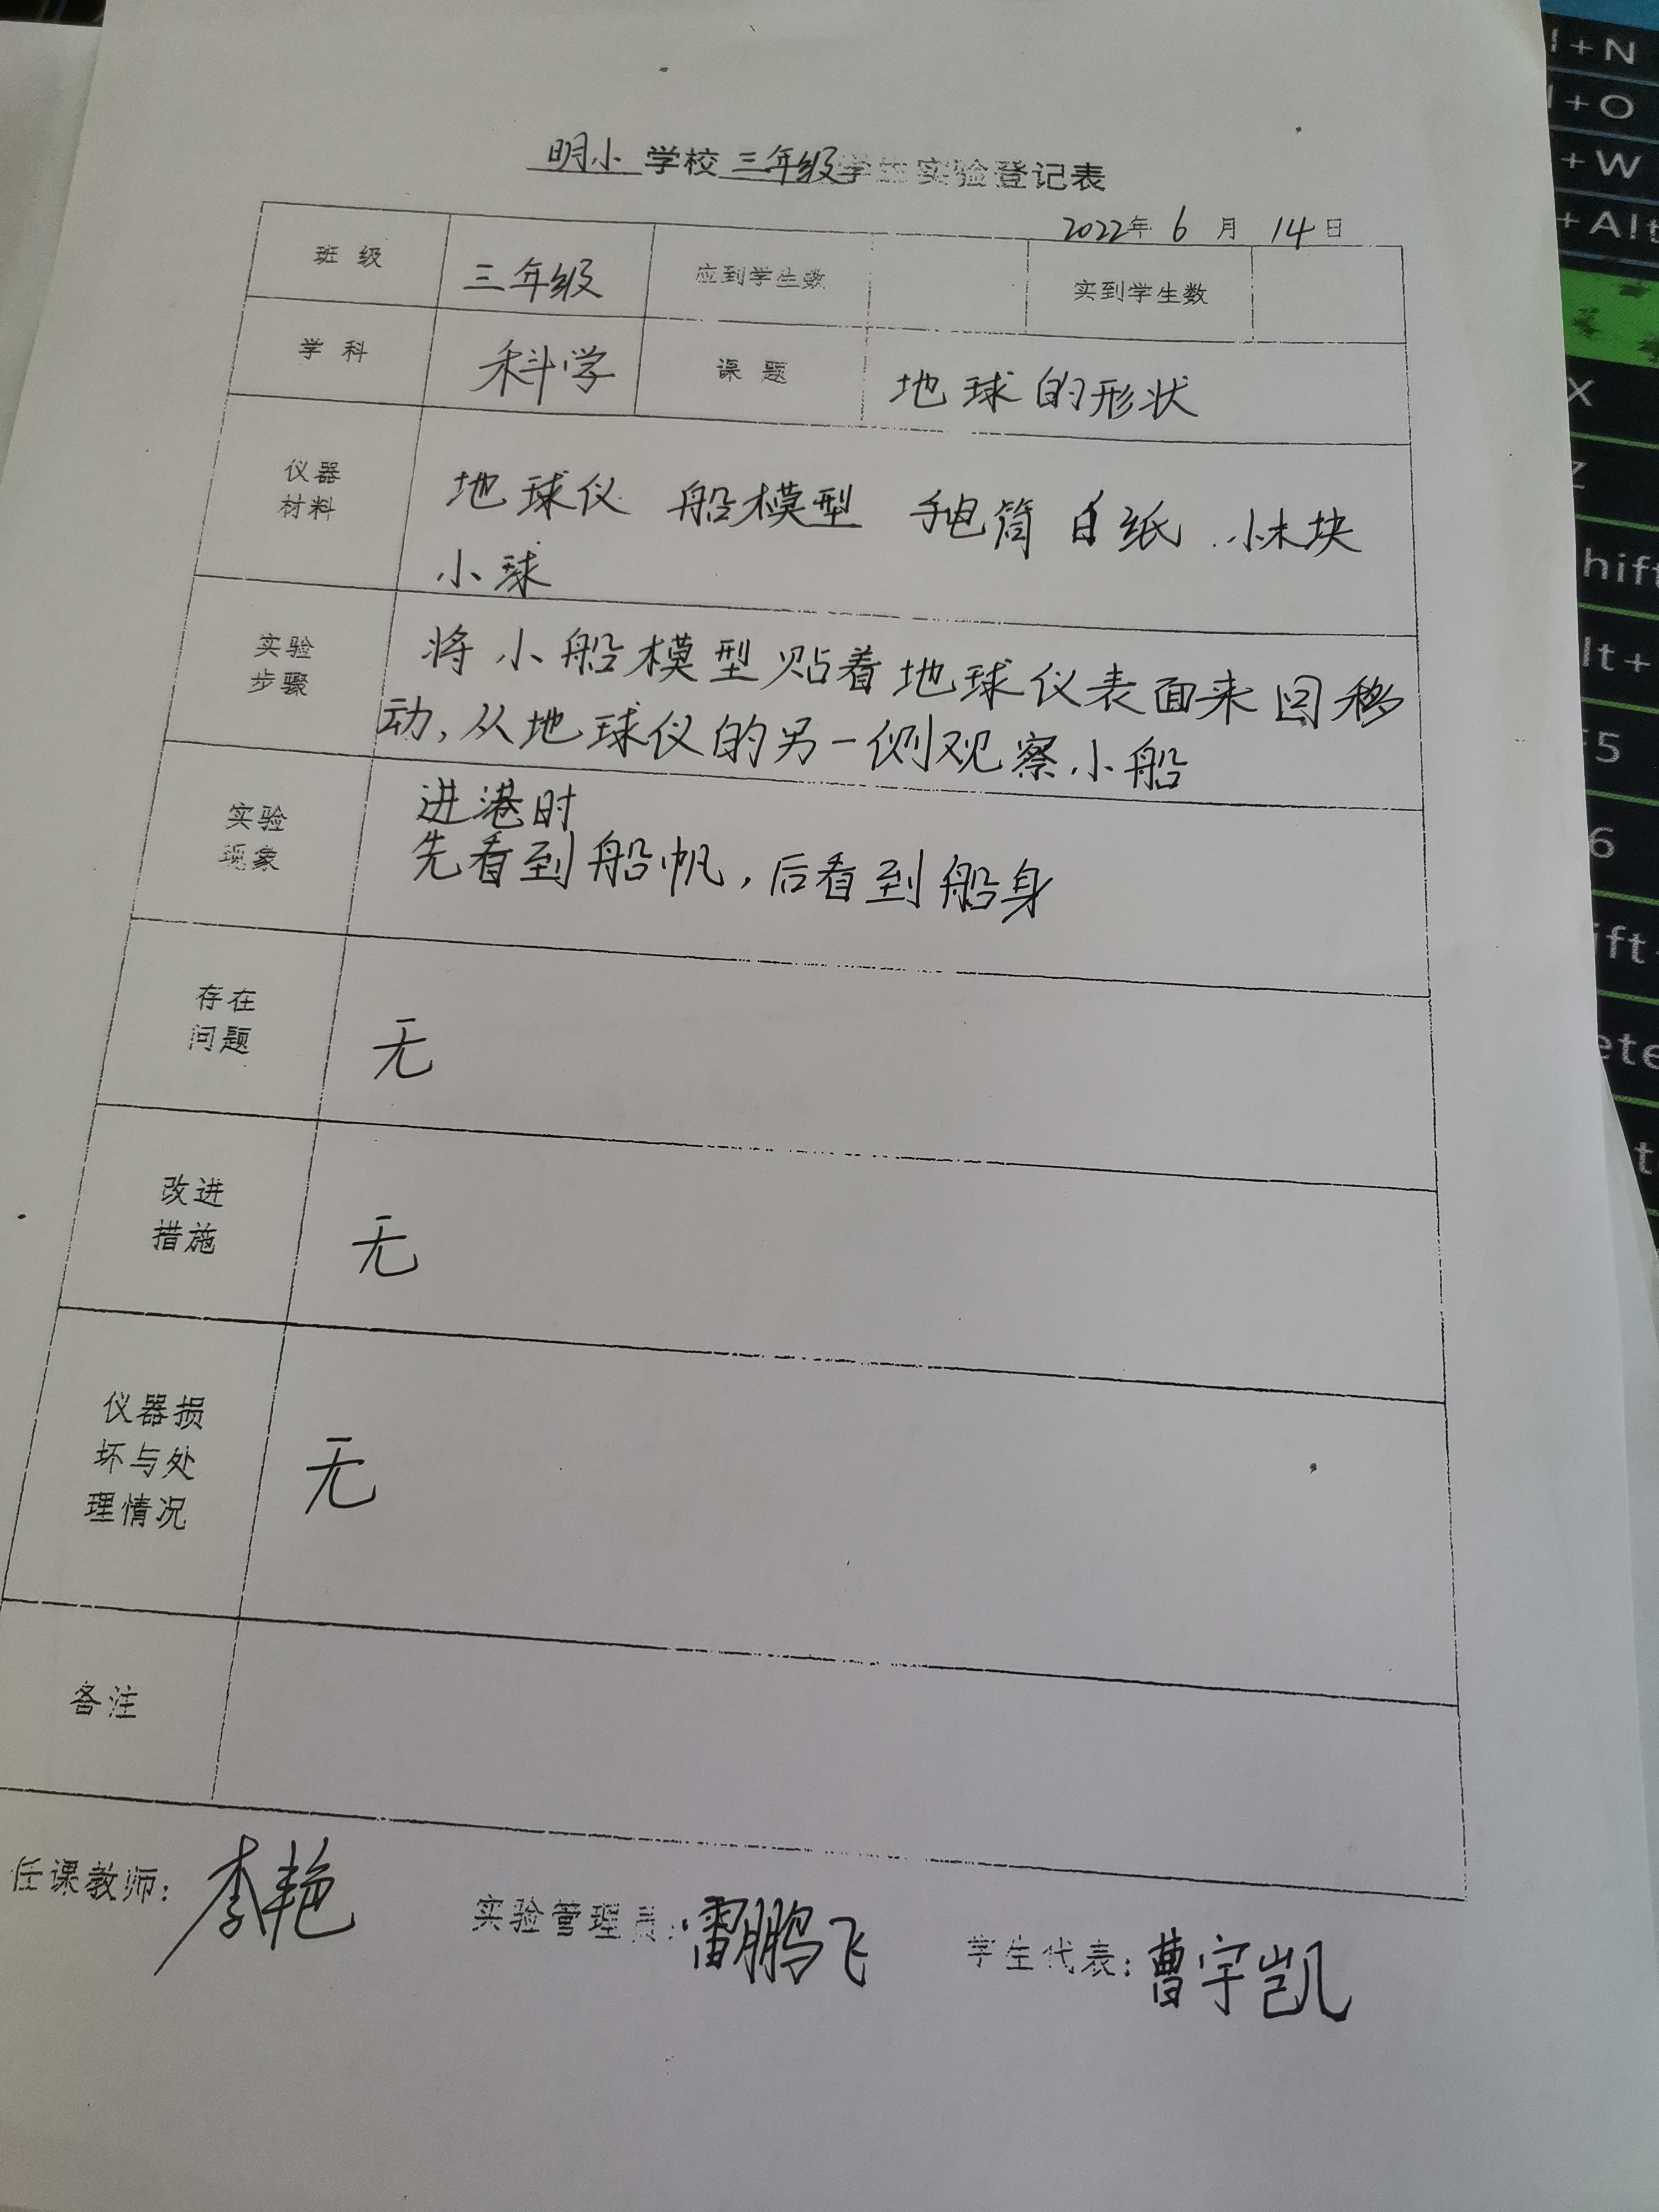 明小 学校 三年级学生实验登记表
2022年 6 月 14日
班 级 三年级 应到学生数 实到学生数
学 科 科学 课 题 地球的形状
仪器
材料
地球仪 船模型 手电筒 白纸 小木块
小球
实验
步骤
将小船模型贴着地球仪表面来回移
动,从地球仪的另一侧观察小船
实验
现象
进港时
先看到船帆,后看到船身
存在
问题
无
改进
措施
无
仪器损
坏与处
理情况
无
备注
任课教师: 李艳 实验管理员: 雷鹏飞 学生代表: 曹宇凯
l+N
l+O
+W
+Alt
X
Z
hift
lt+
F5
6
ift
ete
t